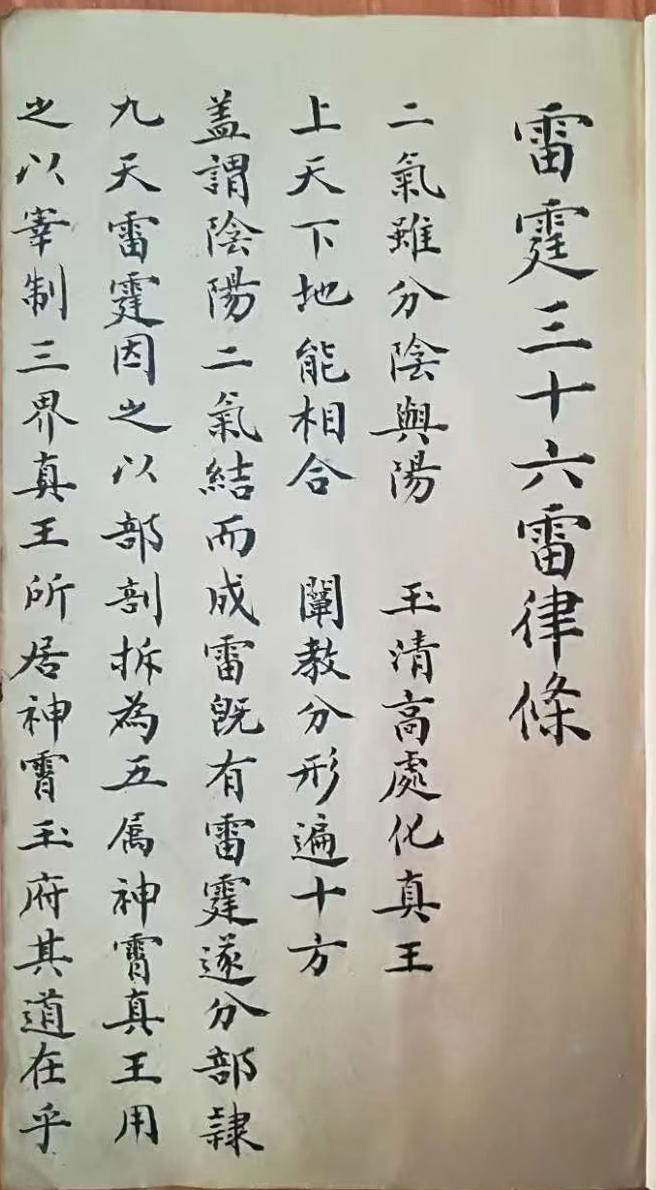 雷霆三十六雷律條
二氣雖分陰與陽　玉清高處化真王
上天下地能相合　闡教分形遍十方
盖謂陰陽二氣結而成雷既有雷霆遂分部隷
九天雷霆因之以部剖拆為五属神霄真王用
之以宰制三界真王所居神霄玉府其道在乎